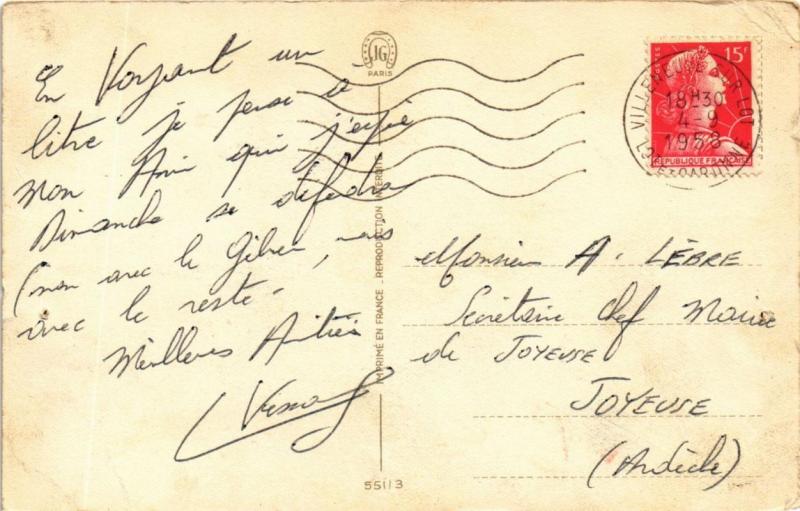 En Voyant un
litre je pense à
mon Ami qui j'espère
Dimanche se défendra
(non avec le Gibier, mais
avec le reste.
Meilleures Amitiés
IG
PARIS
15F
REPUBLIQUE FRANÇAISE
VILLENEUVE SUR LOT
18H30
4-9
1958
LOT-ET-GARONNE
IMPRIMÉ EN FRANCE - REPRODUCTION INTERDITE
Monsieur A. LÈBRE
Secrétaire Chef Mairie
de JOYEUSE
JOYEUSE
(Ardèche)
55113